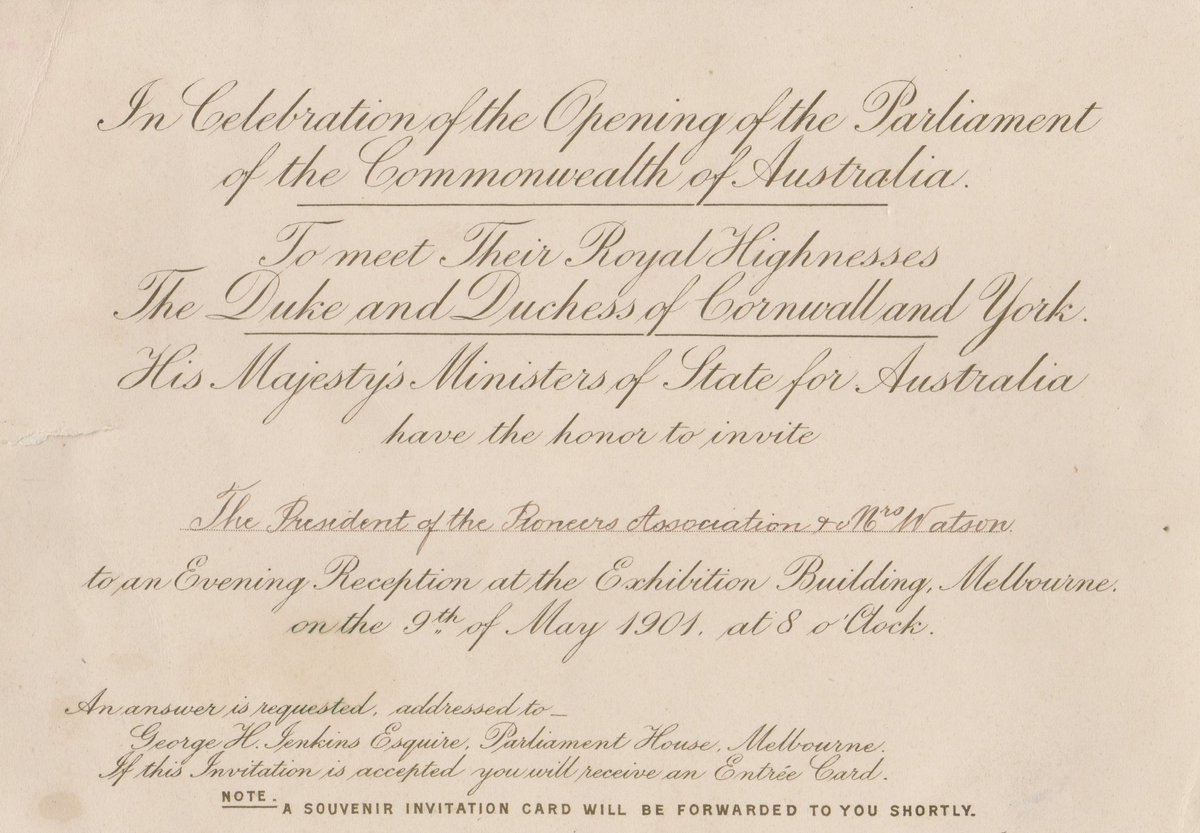 In Celebration of the Opening of the Parliament
of the Commonwealth of Australia.
To meet Their Royal Highnesses
The Duke and Duchess of Cornwall and York.
His Majesty's Ministers of State for Australia
have the honor to invite
The President of the Pioneers Association & Mrs Watson.
to an Evening Reception at the Exhibition Building, Melbourne.
on the 9th of May 1901. at 8 o'Clock.
An answer is requested, addressed to—
George H. Jenkins Esquire, Parliament House, Melbourne.
If this Invitation is accepted you will receive an Entrée Card.
NOTE. A SOUVENIR INVITATION CARD WILL BE FORWARDED TO YOU SHORTLY.